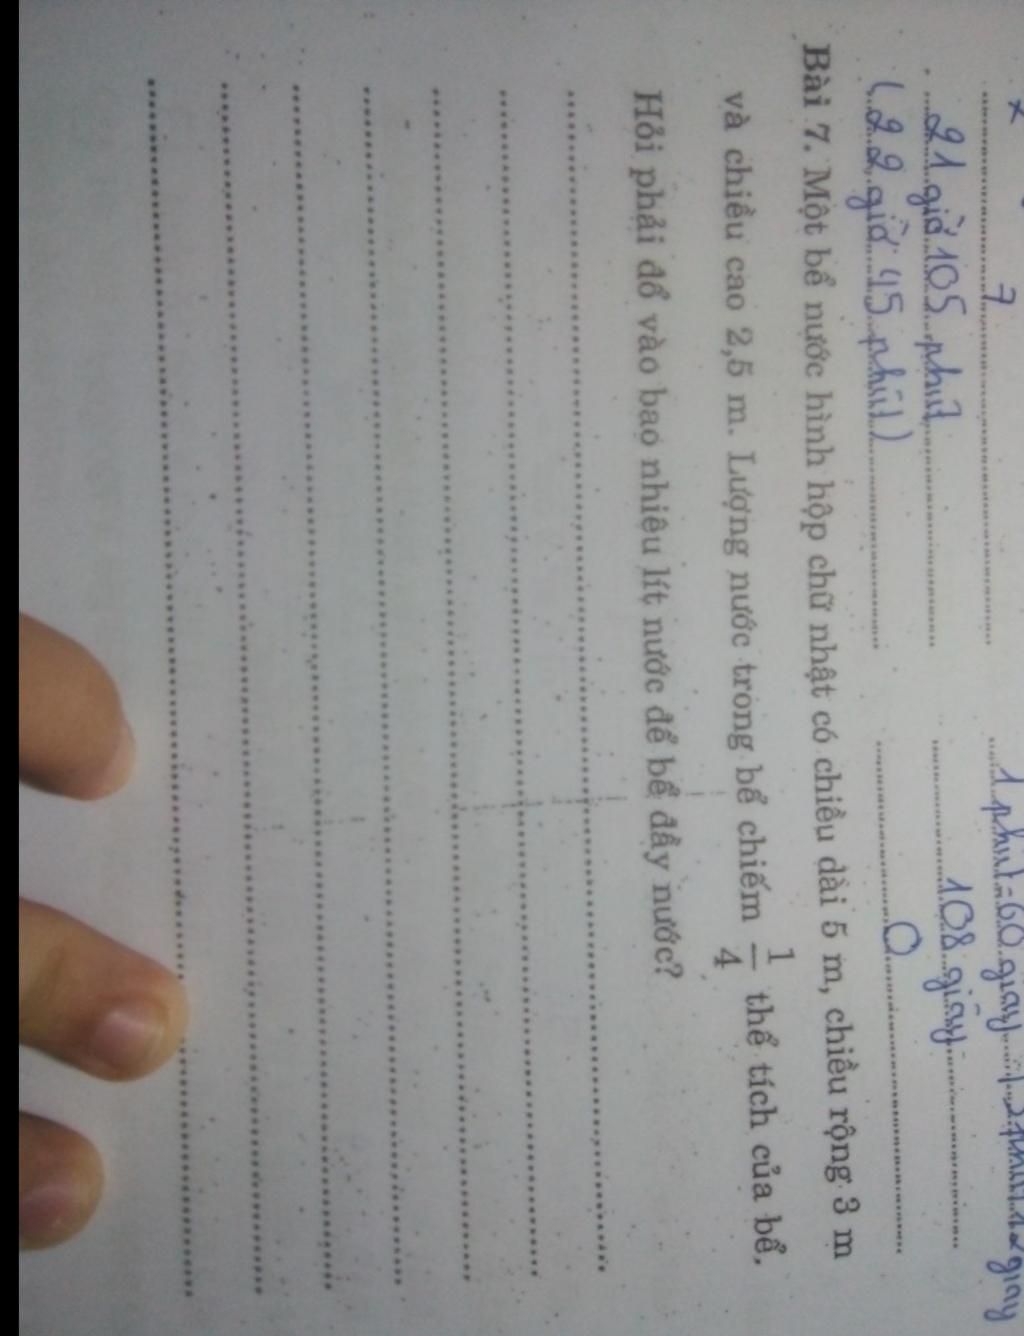 x
7
21 giờ 105 phút
(22 giờ 45 phút)
1 phút = 60 giây
108 giây
0
Bài 7. Một bể nước hình hộp chữ nhật có chiều dài 5 m, chiều rộng 3 m
và chiều cao 2,5 m. Lượng nước trong bể chiếm 1/4 thể tích của bể.
Hỏi phải đổ vào bao nhiêu lít nước để bể đầy nước?